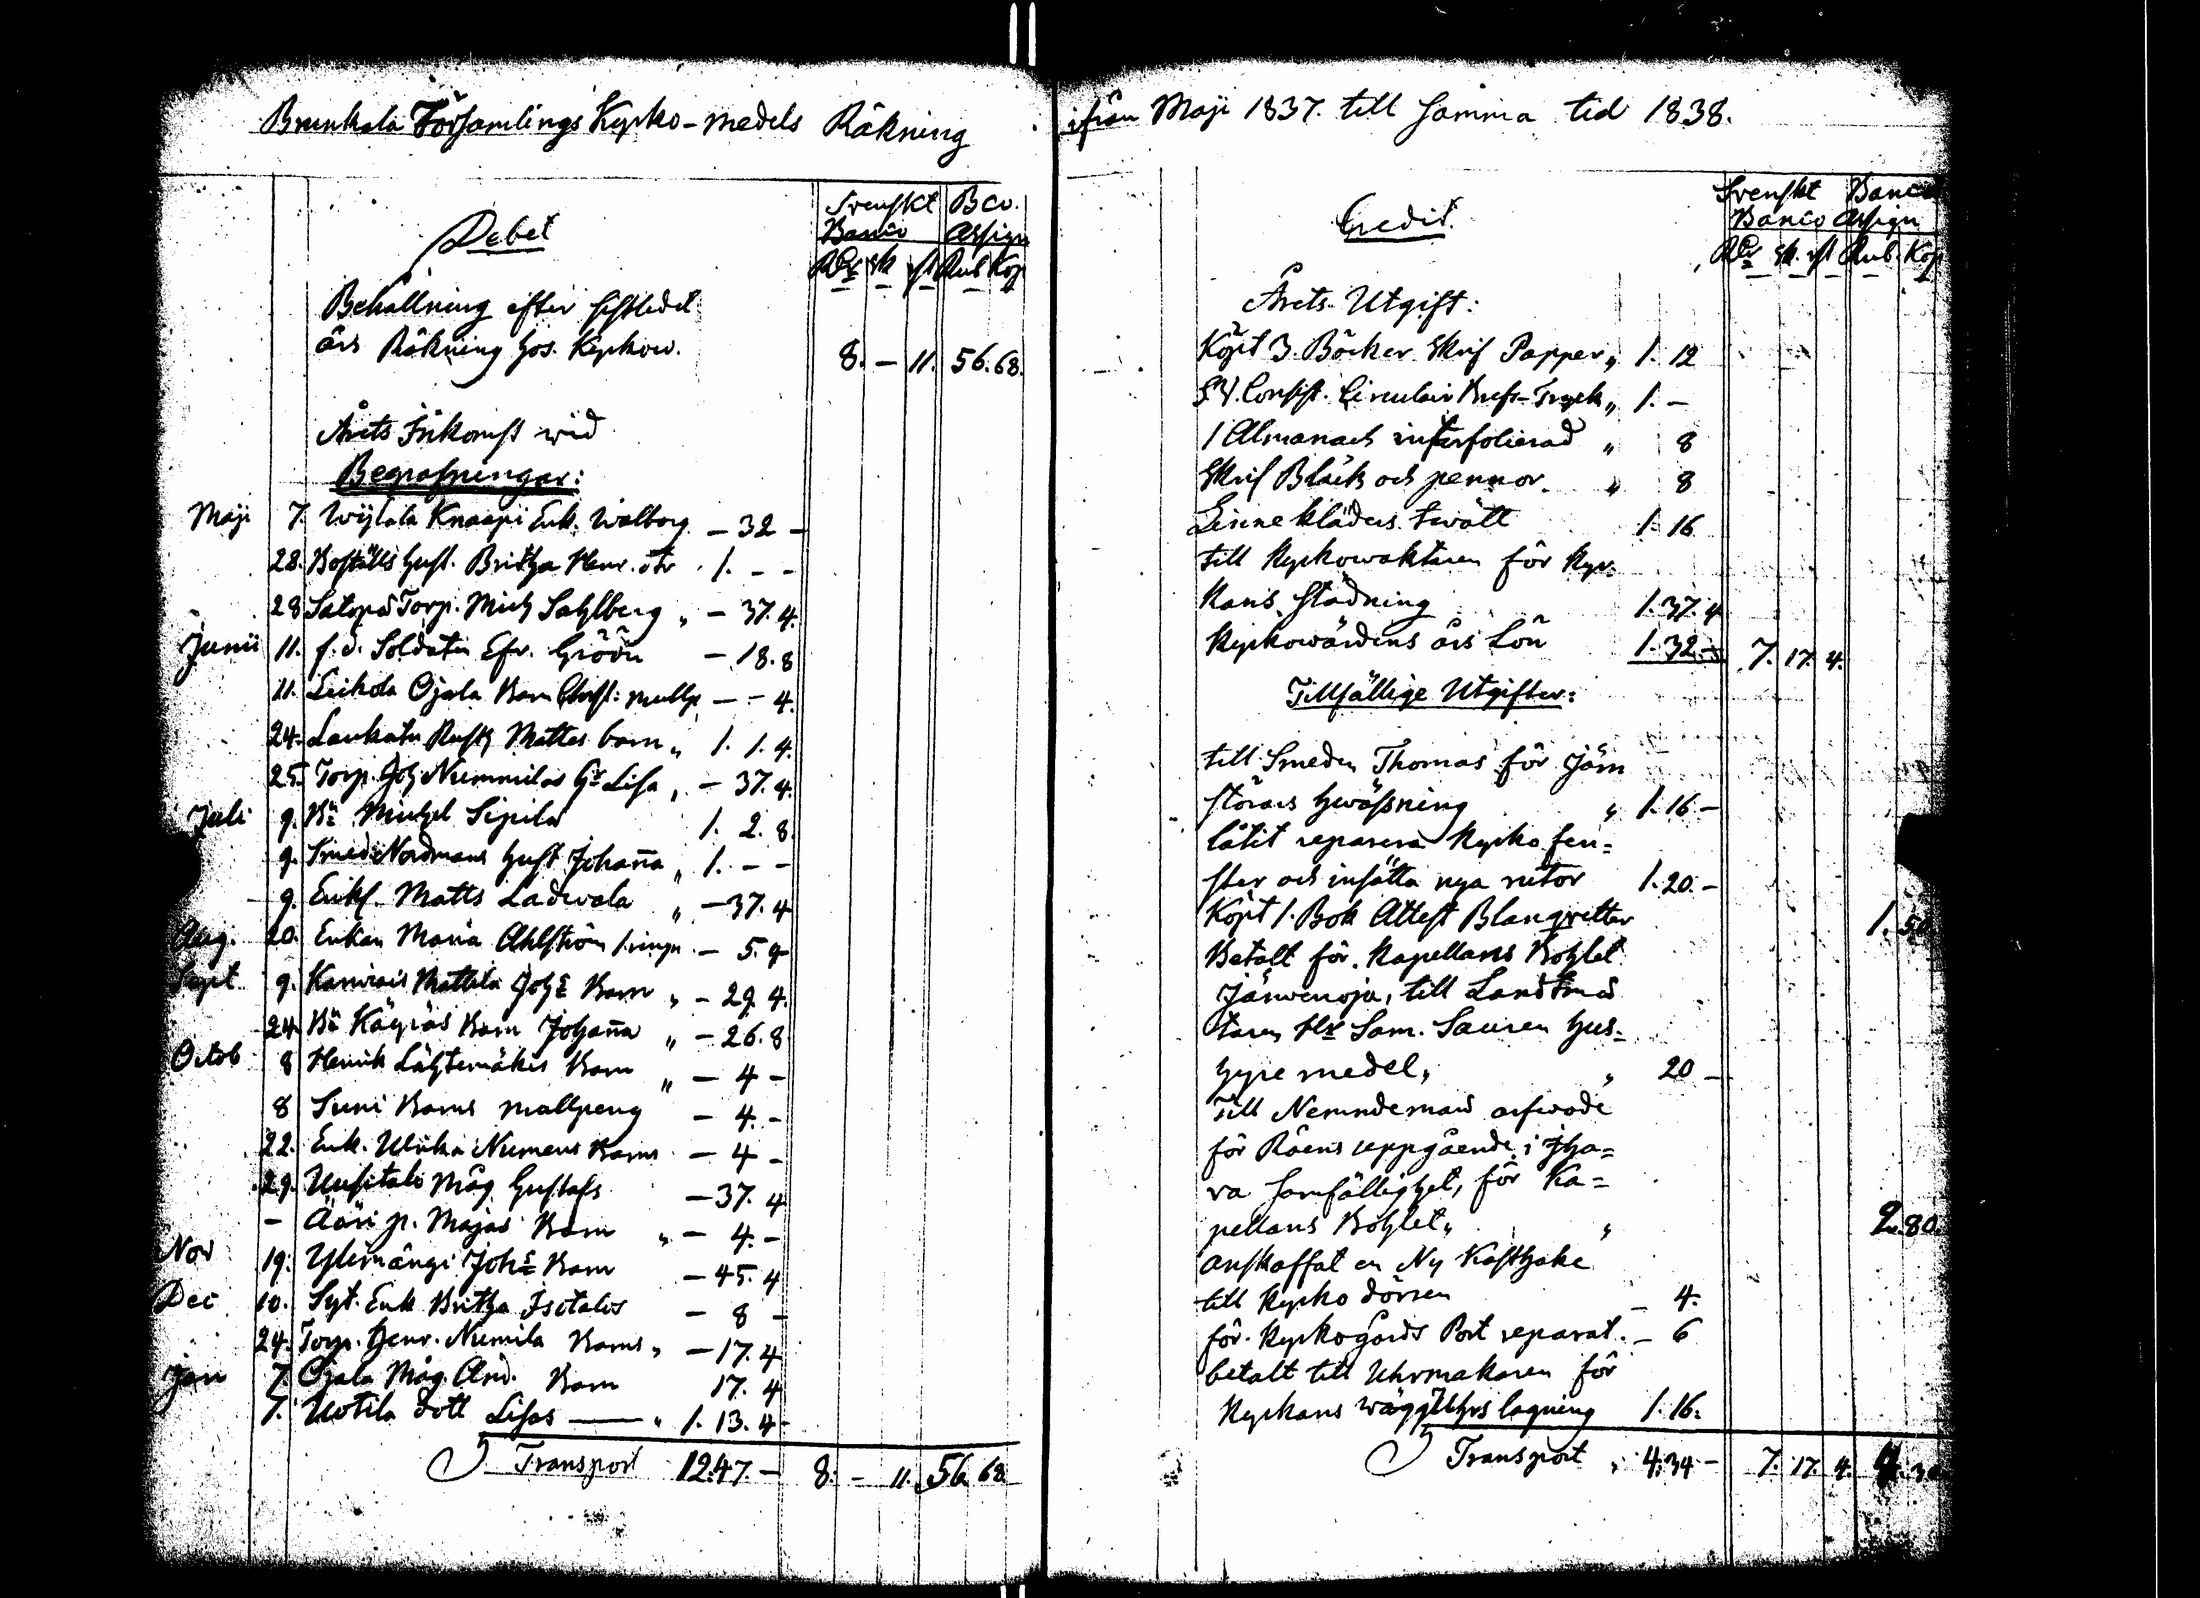 Brunkala Församlings Kyrko-medels Räkning
Debet
Svenskt Bco.
Banco Assign
RDr sk rst Rub Kop
Behållning efter sistledet
års Räkning hos Kyrkow. 8. – 11. 56. 68.
Årets Inkomst wid
Begrafningar:
Maji 7. Wijlala Knaapi Enk. Walborg – 32 –
28. Boställs Hust. Britha Henr. dtr 1. – –
28 Satopä Torp. Mich Sahlberg „ – 37. 4.
Junii 11. f. d. Soldaten Efr. Gröön – 18. 8
11. Leikola Ojala Barn Christ: mullp – – 4.
24. Laukatu Rusth Mattes barn „ 1. 1. 4.
25. Torp. Joh Nummilas Hu Lisa „ – 37. 4.
Juli 9. Bn Michel Sipila 1. 2. 8.
9. Smed Nordmans Hust Johanna „ 1. – –
9. Enkl. Matts Ladwala „ – 37. 4
Aug. 20. Enkan Maria Ahlström 1. ringn – 5. 4
Sept. 9. Kamrais Mattila Johs Barn „ – 29. 4.
24. Bn Käyräs Barn Johanna „ – 26. 8
Octob 8 Henrik Lähtemäkis Barn „ – 4 –
8 Suni Barns mullpeng – 4. –
22. Enk. Ulrika Numens Barns – 4 –
29. Uusitalo Måg Gustafs – 37. 4
– Ääri p. Majas Barn „ – 4. –
Nov 19. Ylimängi Johs Barn – 45. 4
Dec 10. Syt. Enk Britha Isotalos – 8 –
24. Torp. Henr. Numila Barns „ – 17. 4
Jan 7. Ojala Måg And. Barn 17. 4
7. Uotila dott Lisas — „ 1. 13. 4
Transport 12.47. – 8. – 11. 56 68
ifrån Maji 1837. till samma tid 1838.
Credit.
Svenskt Banco
Banco Assign
RDr sk. rst Rub. Kop
Årets Utgift:
Köpt 3. Böcker Skrif Papper „ 1. 12
Consist. Circulair Bref-Tryck „ 1. –
1 Almanach interfolierad „ 8
Skrif Bläck och pennor. „ 8
Linne kläders twätt 1. 16
till Kyrkowaktaren för Kyr-
kans städning 1. 37. 4
Kyrkowärdens års Lön 1. 32. – 7. 17. 4.
Tillfällige Utgifter:
till Smeden Thomas för Järn
störars hwässning „ 1. 16 –
låtit reparera Kyrko fen=
ster och insätta nya rutor 1. 20. –
Köpt 1. Bok Attest Blanqvetter 1. 50
Betalt för Kapellans Bohlet
Järwenoja, till Landtmä
taren Hr Sam. Sauren hus-
hyre medel, „ 20 –
Till Nemndeman arfwode
för Råens uppgående i Iha=
ra samfällighet, för Ka=
pellans Bohlet, „ 2. 80.
anskaffat en Ny Kasthake
till Kyrko dörren – 4.
för Kyrkogårds Port reparat. – 6
betalt till Uhrmakaren för
Kyrkans wägg Uhrs lagning 1. 16.
Transport „ 4. 34 – 7. 17. 4. 4. 30